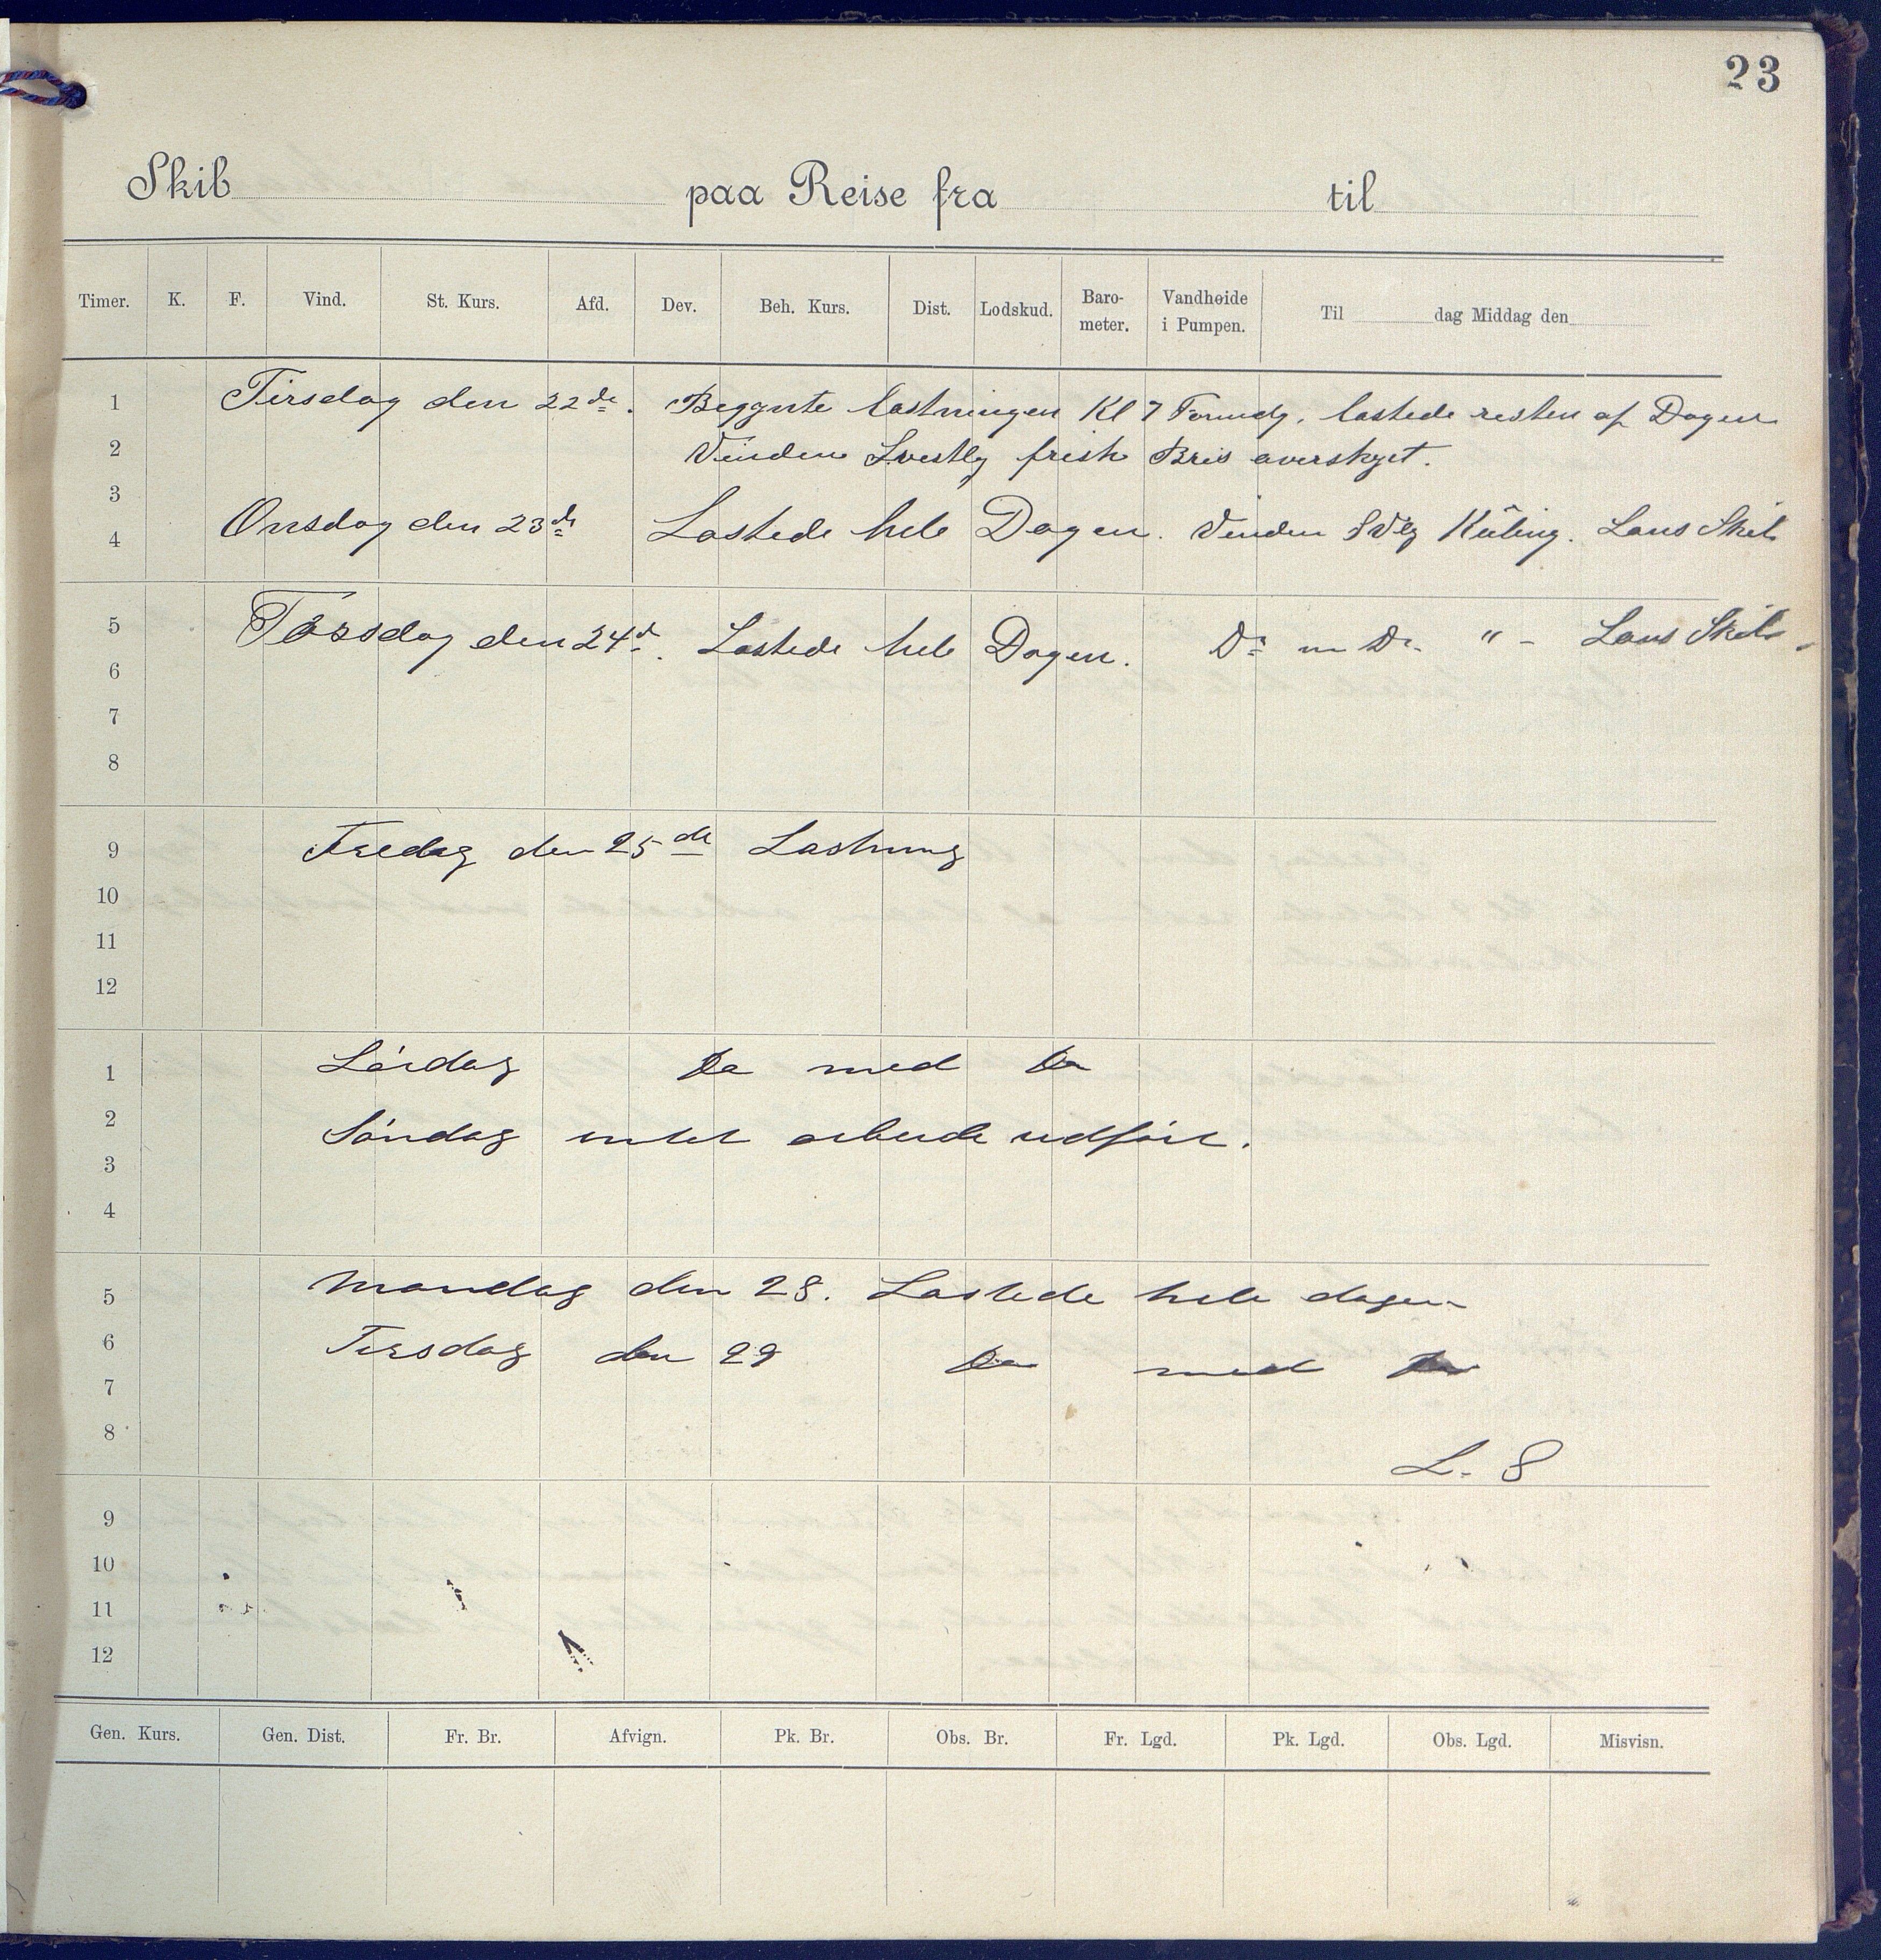 23
Skib paa Reise fra til
Timer. K. F. Vind. St. Kurs. Afd. Dev. Beh. Kurs. Dist. Lodskud. Baro-meter. Vandhøide i Pumpen. Til dag Middag den
1 Tirsdag den 22de. Beggnte lastningen Kl 7 Formdg. lastede resten af Dagen
2 Vinden S.vestlg frisk Bris overskyet.
3
4 Onsdag den 23de Lastede hele Dagen. Vinden SVlg Küling. Lans Skib
5 Torsdag den 24d. Lastede hele Dagen. Do m Do " - Lans Skib
6
7
8
9 Fredag den 25de Lastning
10
11
12
1 Lördag Do med Do
2 Söndag intet arbeide udfört.
3
4
5 Mandag den 28. Lastede hele dagen
6 Tirsdag den 29 Do med Do
7
8 L. S
9
10
11
12
Gen. Kurs. Gen. Dist. Fr. Br. Afvign. Pk. Br. Obs. Br. Fr. Lgd. Pk. Lgd. Obs. Lgd. Misvisn.